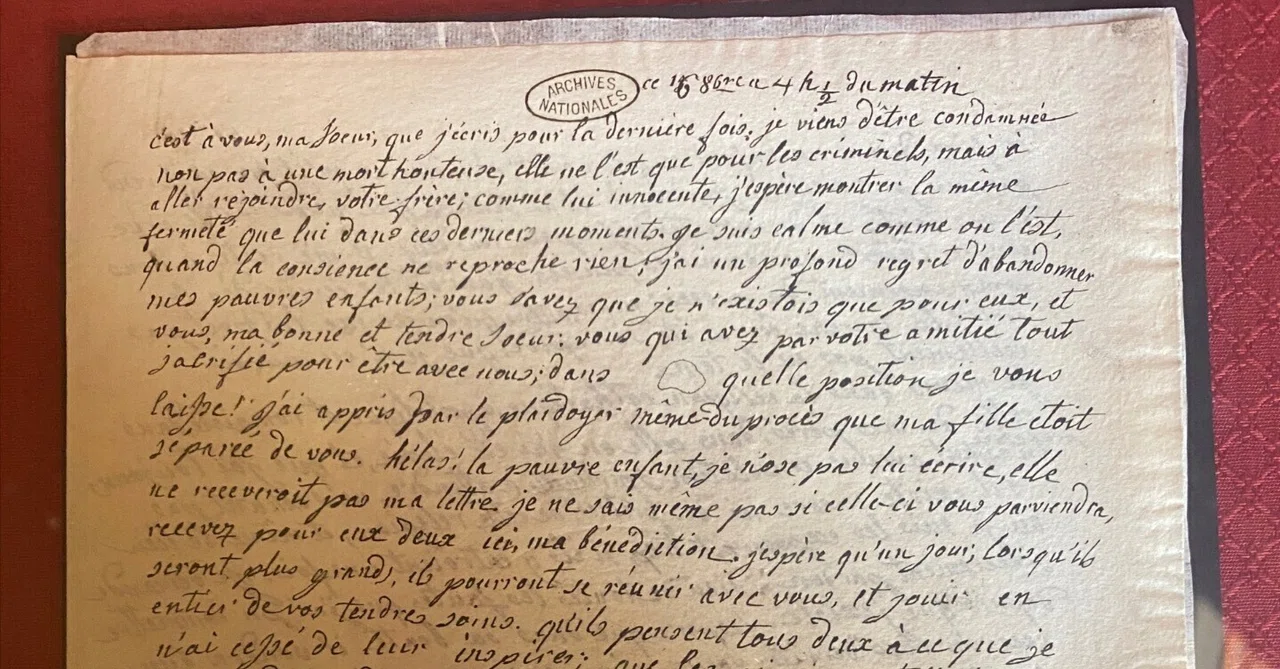 ARCHIVES NATIONALES
ce 16 8bre a 4 h ½ du matin
c'est à vous, ma Soeur, que j'écris pour la dernière fois. je viens d'être condamnée
non pas à une mort honteuse, elle ne l'est que pour les criminels, mais à
aller rejoindre, votre frère; comme lui innocente, j'espère montrer la même
fermeté que lui dans ces derniers moments. je suis calme comme on l'est,
quand la consience ne reproche rien, j'ai un profond regret d'abandonner
mes pauvres enfants; vous savez que je n'existois que pour eux, et
vous, ma bonne et tendre Soeur. vous qui avez par votre amitié tout
sacrifié pour être avec nous; dans quelle position je vous
laisse! j'ai appris par le plaidoyer même du procès que ma fille étoit
séparée de vous. hélas! la pauvre enfant, je n'ose pas lui écrire, elle
ne receveroit pas ma lettre. je ne sais même pas si celle-ci vous parviendra,
recevez pour eux deux ici, ma bénédiction. j'espère qu'un jour, lorsqu'ils
seront plus grands, ils pourront se réunir avec vous, et jouir en
entier de vos tendres soins. qu'ils pensent tous deux à ce que je
n'ai cessé de leur inspirer; que les